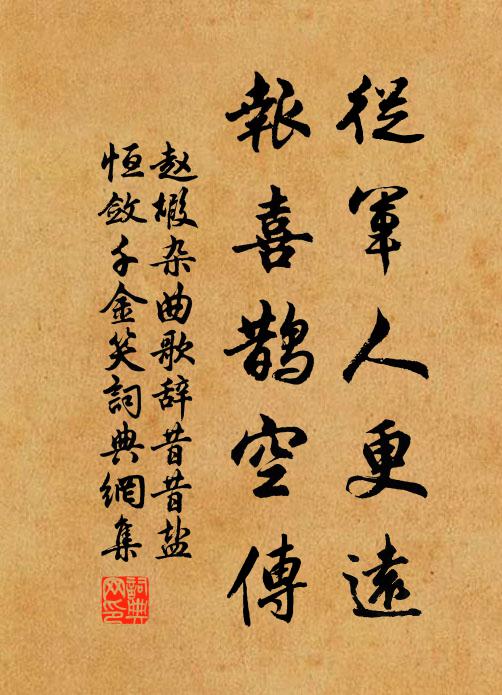 從軍人更遠
報喜鵲空傳
赵嘏杂曲歌辞昔昔盐
恆斂千金笑詞典網集
詞典
网印